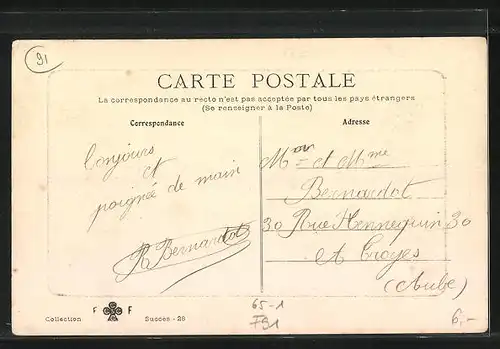 91
CARTE POSTALE
La correspondance au recto n'est pas acceptée par tous les pays étrangers
(Se renseigner à la Poste)
Correspondance
Bonjours
et
poignée de main
R Bernardot
Adresse
Mon et Mme
Bernardot
30 Rue Hennequin 30
A Troyes
(Aube)
Collection F F Succes - 28
65-1
F91
6,-